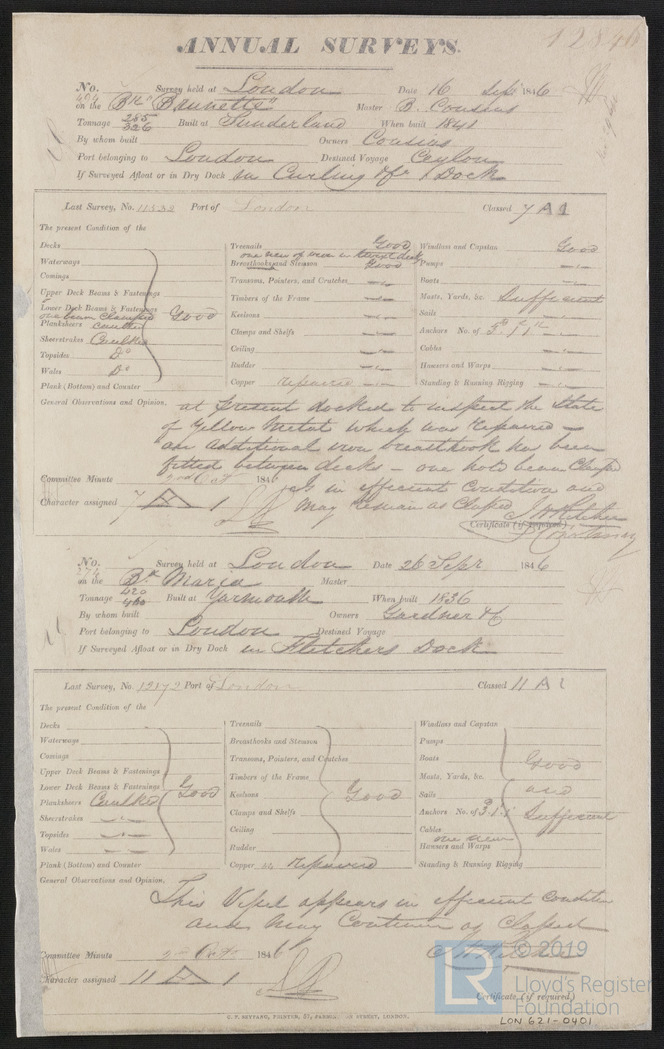 12846
ANNUAL SURVEYS.
No. 404 Survey held at London Date 16 Sept 1846
on the Bk "Brunette" Master B. Cousins
Tonnage 285 326 Built at Sunderland When built 1841
By whom built Owners Cousins
Port belonging to London Destined Voyage Ceylon
If Surveyed Afloat or in Dry Dock in Curling & Co Dock
Last Survey, No. 11532 Port of London Classed 7 A 1
The present Condition of the
Decks
Waterways
Comings
Upper Deck Beams & Fastenings
Lower Deck Beams & Fastenings Good
one beam clamped
Planksheers caulked
Sheerstrakes Caulked
Topsides Do
Wales Do
Plank (Bottom) and Counter
Treenails Good
one new of iron in betwixt decks
Breasthooks and Stemson Good
Transoms, Pointers, and Crutches
Timbers of the Frame
Keelsons
Clamps and Shelfs
Ceiling
Rudder
Copper repaired
Windlass and Capstan Good
Pumps
Boats
Masts, Yards, &c. Sufficient
Sails
Anchors No. of 3. 1. 1
Cables
Hawsers and Warps
Standing & Running Rigging
General Observations and Opinion. at present docked to inspect the State
of Yellow Metal which was repaired
an additional iron breasthook has been
fitted between decks - one hold beam Clamped
Committee Minute 2nd Oct 1846
is in efficient Condition and
Character assigned 7 A 1 may remain as Classed
Certificate (if required)
No. 374 Survey held at London Date 26 Sepr 1846
on the Bk Maria Master
Tonnage 420 460 Built at Yarmouth When built 1836
By whom built Owners Gardner & Co
Port belonging to London Destined Voyage
If Surveyed Afloat or in Dry Dock in Fletchers Dock
Last Survey, No. 12172 Port of London Classed 11 A 1
The present Condition of the
Decks
Waterways
Comings
Upper Deck Beams & Fastenings
Lower Deck Beams & Fastenings Good
Planksheers Caulked
Sheerstrakes
Topsides
Wales
Plank (Bottom) and Counter
Treenails
Breasthooks and Stemson
Transoms, Pointers, and Crutches
Timbers of the Frame
Keelsons Good
Clamps and Shelfs
Ceiling
Rudder
Copper repaired
Windlass and Capstan
Pumps
Boats Good
Masts, Yards, &c.
Sails and
Anchors No. of 3. 1. 1 Sufficient
Cables
one new
Hawsers and Warps
Standing & Running Rigging
General Observations and Opinion.
This Vessel appears in efficient Condition
and may Continue as Classed
Committee Minute 2nd Octr 1846
Character assigned 11 A 1
Certificate (if required)
© 2019
LR Lloyd's Register
Foundation
LON 621-0401